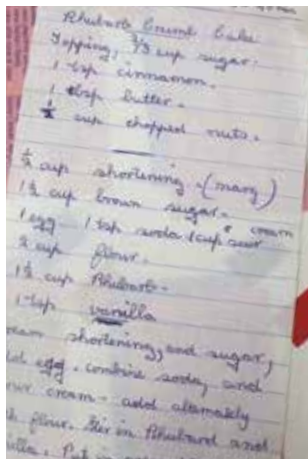 Rhubarb Crumb Cake
Topping, 2/3 cup sugar.
1 tsp cinnamon.
1 tbsp butter.
1/2 cup chopped nuts.
1/2 cup shortening - (marg)
1 1/2 cup brown sugar. cream
1 egg 1 tsp soda 1 cup sour
cup flour.
1 1/2 cup Rhubarb.
1 tsp vanilla
shortening, and sugar,
egg. combine soda, and
cream - add alternately
flour. Stir in Rhubarb and
Put in